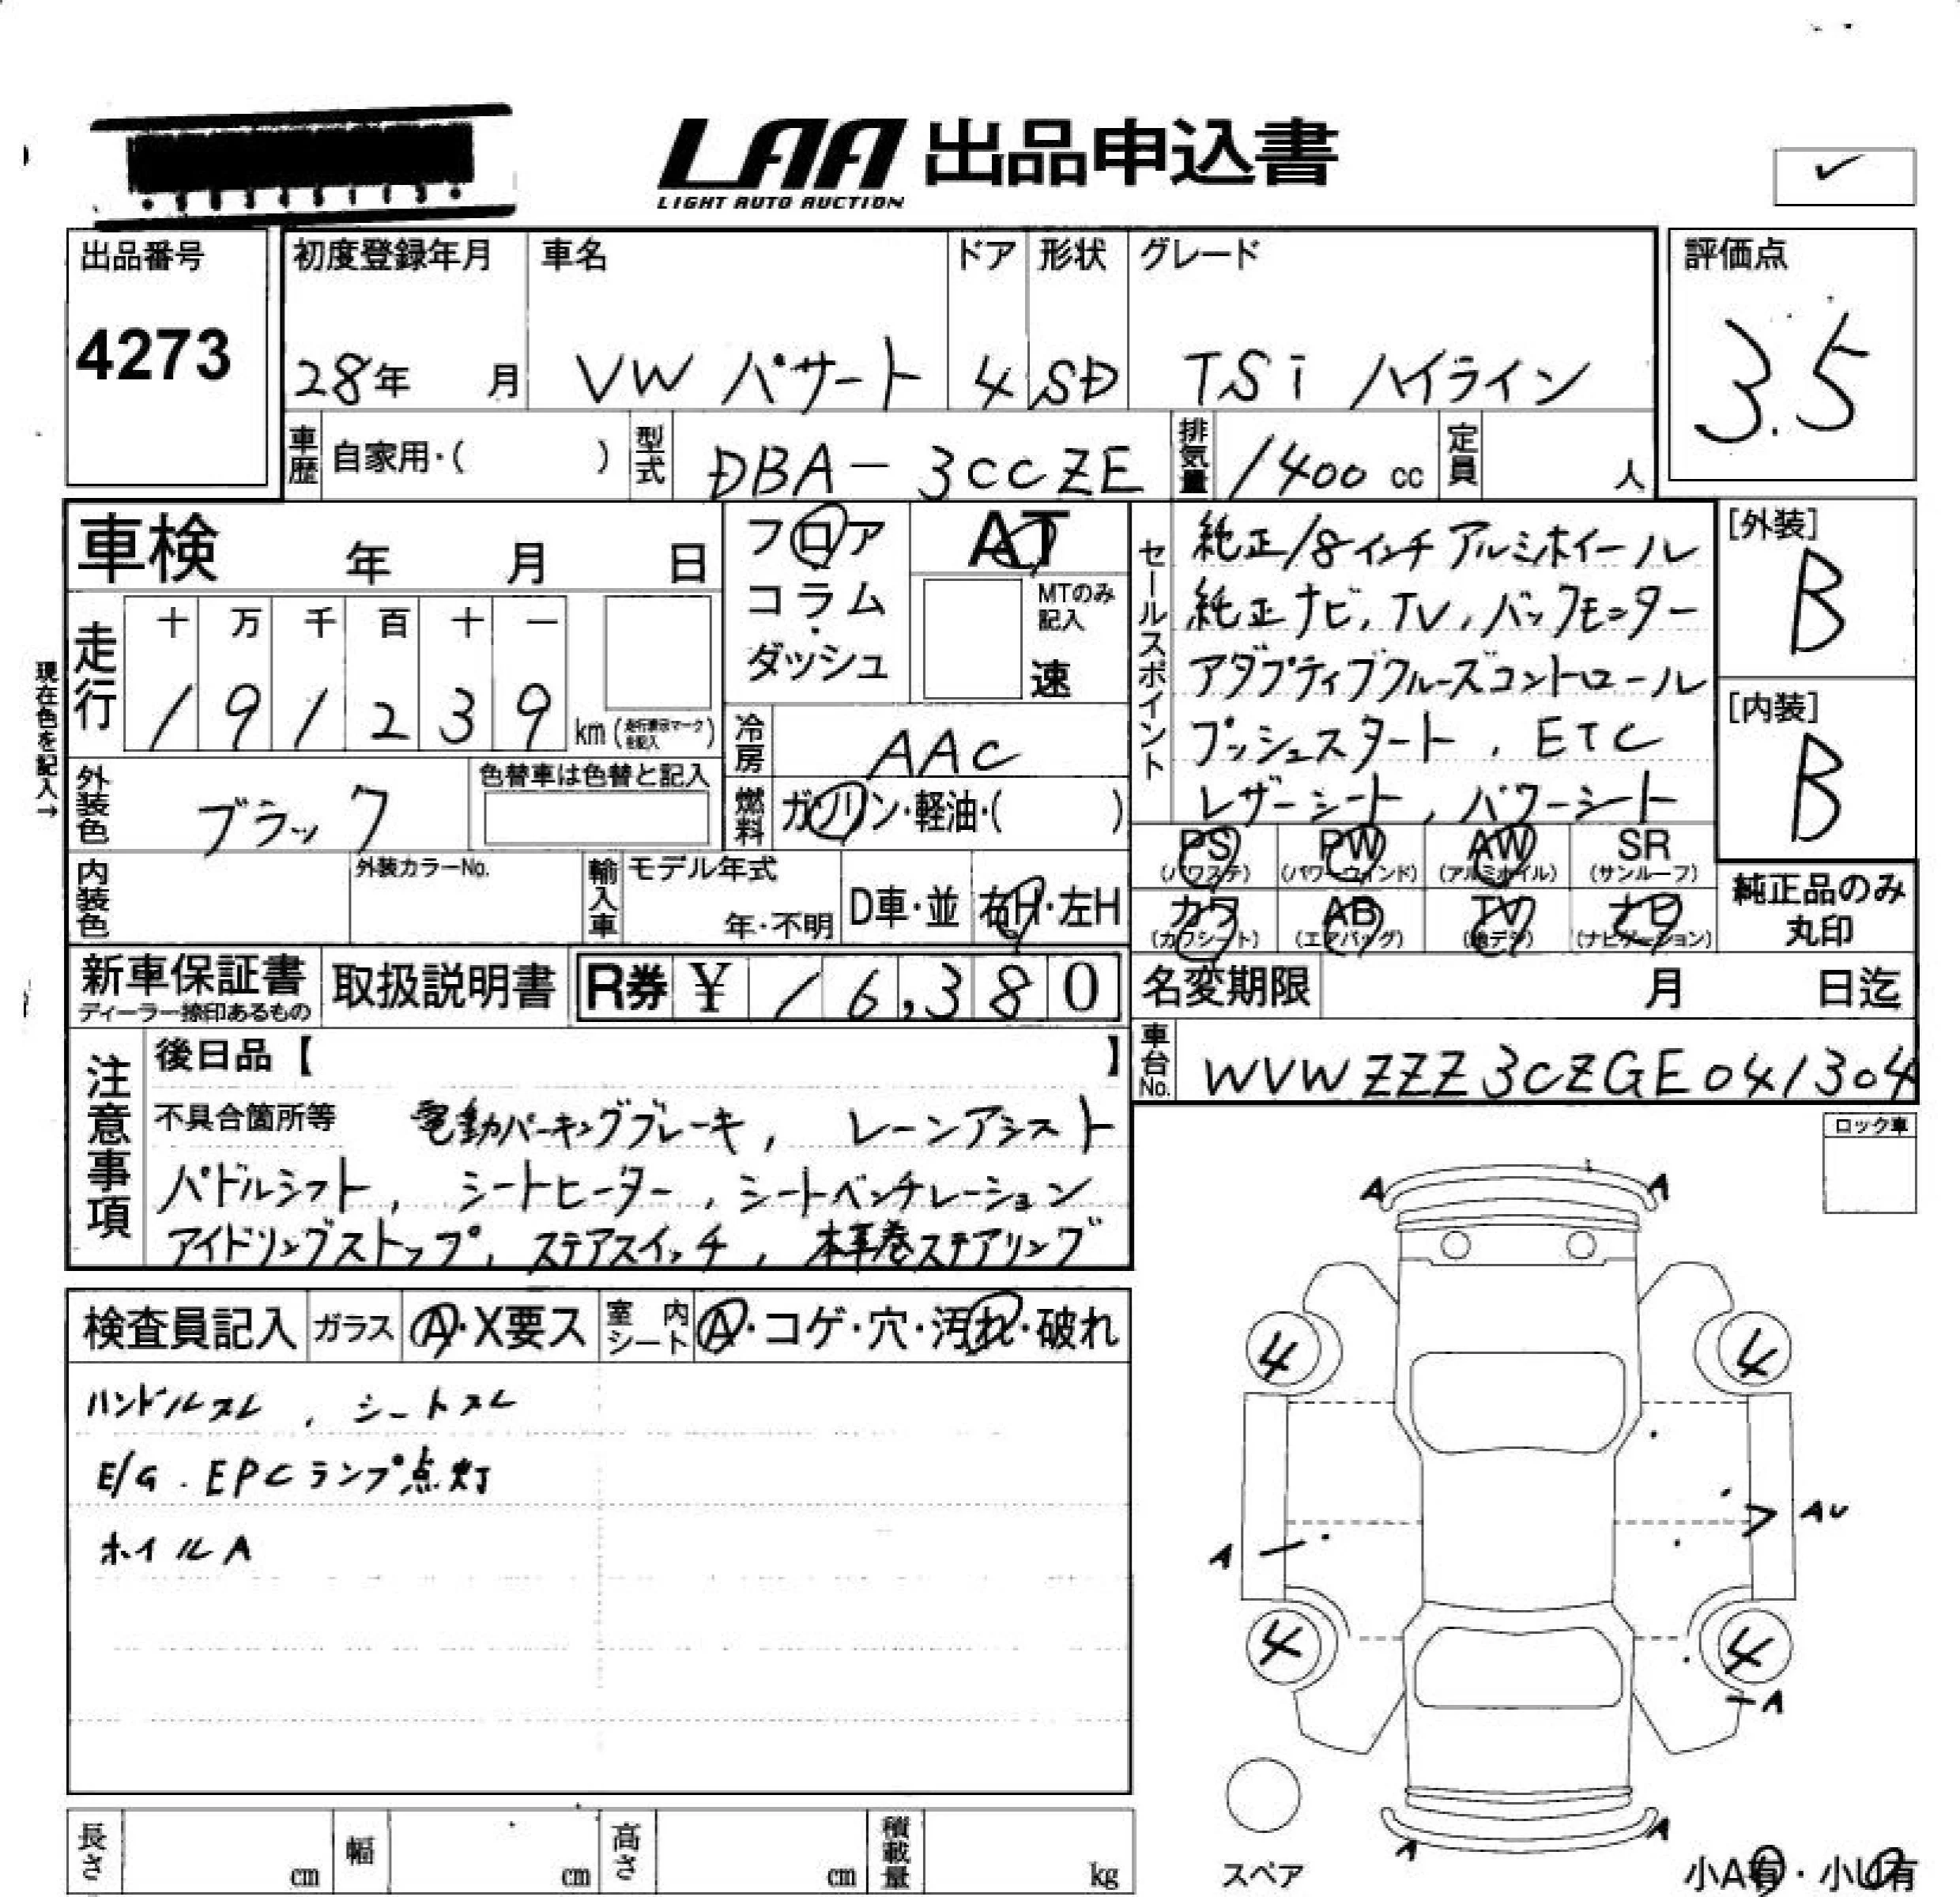 LAA 出品申込書
LIGHT AUTO AUCTION
✓
出品番号
4273
初度登録年月
28年 月
車名
VW パサート
ドア
4
形状
SD
グレード
TSi ハイライン
評価点
3.5
車歴 自家用・( )
型式 DBA-3CCZE
排気量 1400 cc
定員 人
車検 年 月 日
フロア
コラム
ダッシュ
AT
MTのみ
記入
速
セールスポイント
純正18インチアルミホイール
純正ナビ, TV, バックモニター
アダプティブクルーズコントロール
プッシュスタート, ETC
レザーシート, パワーシート
[外装]
B
[内装]
B
現在色を記入→
走行
十 万 千 百 十 一
1 9 1 2 3 9 km (走行表示マークを記入)
冷房 AAC
外装色 ブラック
色替車は色替と記入
燃料 ガソリン・軽油・( )
内装色
外装カラーNo.
輸入車 モデル年式
年・不明
D車・並 右H・左H
PS (パワステ)
PW (パワーウィンド)
AW (アルミホイル)
SR (サンルーフ)
カワ (カワシート)
AB (エアバッグ)
TV (地デジ)
ナビ (ナビゲーション)
純正品のみ
丸印
新車保証書
ディーラー捺印あるもの
取扱説明書
R券 ¥ 16,380
名変期限 月 日迄
車台No. WVWZZZ3CZGE041304
注意事項
後日品【 】
不具合箇所等 電動パーキングブレーキ, レーンアシスト
パドルシフト, シートヒーター, シートベンチレーション
アイドリングストップ, ステアスイッチ, 本革巻ステアリング
ロック車
検査員記入 ガラス A・X要ス 室内シート A・コゲ・穴・汚れ・破れ
ハンドルスレ, シートスレ
E/G. EPCランプ点灯
ホイルA
A A
4 4
AU
A
4 4
A
A A
スペア
小A有・小U有
長さ cm 幅 cm 高さ cm 積載量 kg